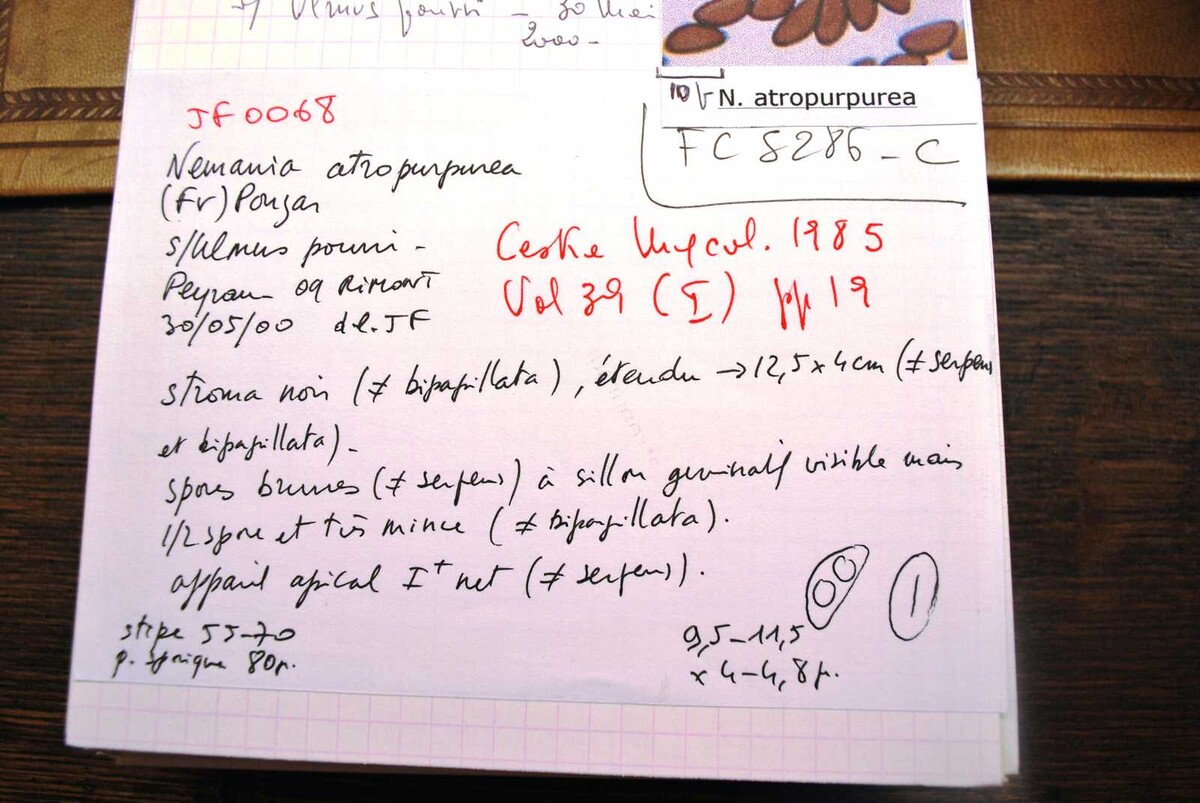 → Ulmus pourri - 30 Mai
2000-
10 µ N. atropurpurea
FC 5286-C
JF0068
Nemania atropurpurea
(Fr) Pouzar
s/Ulmus pourri -
Peyrau 09 RIMONT
30/05/00 det. JF
Ceske Mycol. 1985
Vol 39 (I) pp 19
stroma noir (≠ bipapillata), étendu → 12,5 x 4 cm (≠ serpens
et bipapillata).
spores brunes (≠ serpens) à sillon germinatif visible mais
1/2 spore et très mince (≠ bipapillata).
appareil apical I+ net (≠ serpens).
stipe 55-70
p. sporique 80µ.
9,5-11,5
x 4-4,8 µ.